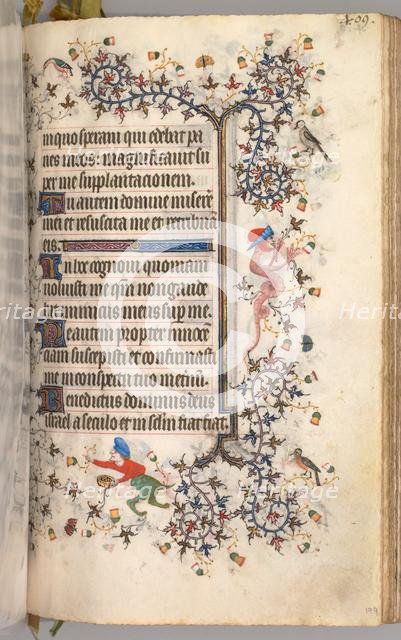 409.
in quo sperani qui edebat pa
nes meos magnificauit su
per me supplantacionem.
Tu autem domine misere
mei et resuscita me et retribuā
eis.
In hoc cognoui quoniam
voluisti me qm̄ non gaude
bit inimicus meus sup me.
Me autem propter innocē
ciam suscepisti et confirmasti
me in conspectu tuo in eternū.
Benedictus dominus deus
israel a seculo et in sclm fiat fiat.
Heritage
Heritage
Heritage
Heritage
Heritage
Heritage
199